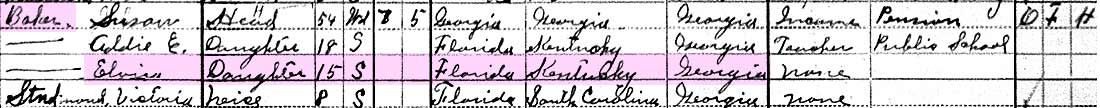 Baker, Susan Head 54 Wd 8 5 Georgia Georgia Georgia Income Pension O F H
— Addie E. Daughter 18 S Florida Kentucky Georgia Teacher Public School
— Elvira Daughter 15 S Florida Kentucky Georgia none
Victoria Neise 8 S Florida South Carolina Georgia none